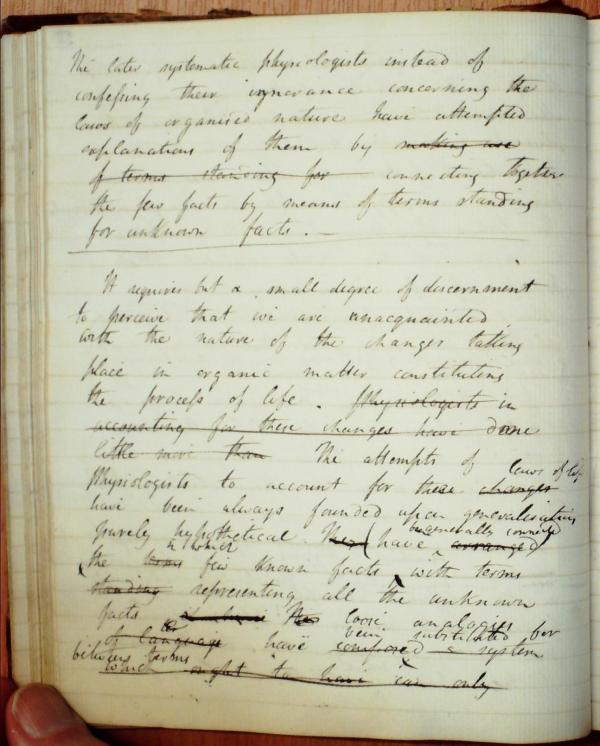 The later systematic physiologists instead of
confessing their ignorance concerning the
laws of organised nature have attempted
explanations of them by making use
of terms standing for connecting together
the few facts by means of terms standing
for unknown facts. —
It requires but a small degree of discernment
to perceive that we are unacquainted
with the nature of the changes taking
place in organic matter constituting
the process of life. Physiologists in
accounting for these changes have done
little more than The attempts of laws of life
Physiologists to account for these changes
have been always founded upon generalisations
purely hypothetical. They have been generally connected arranged
the terms in which few known facts with terms
standing representing all the unknown
facts & loose analogies
of language have been substituted for composed a system
between terms
which ought to have can only